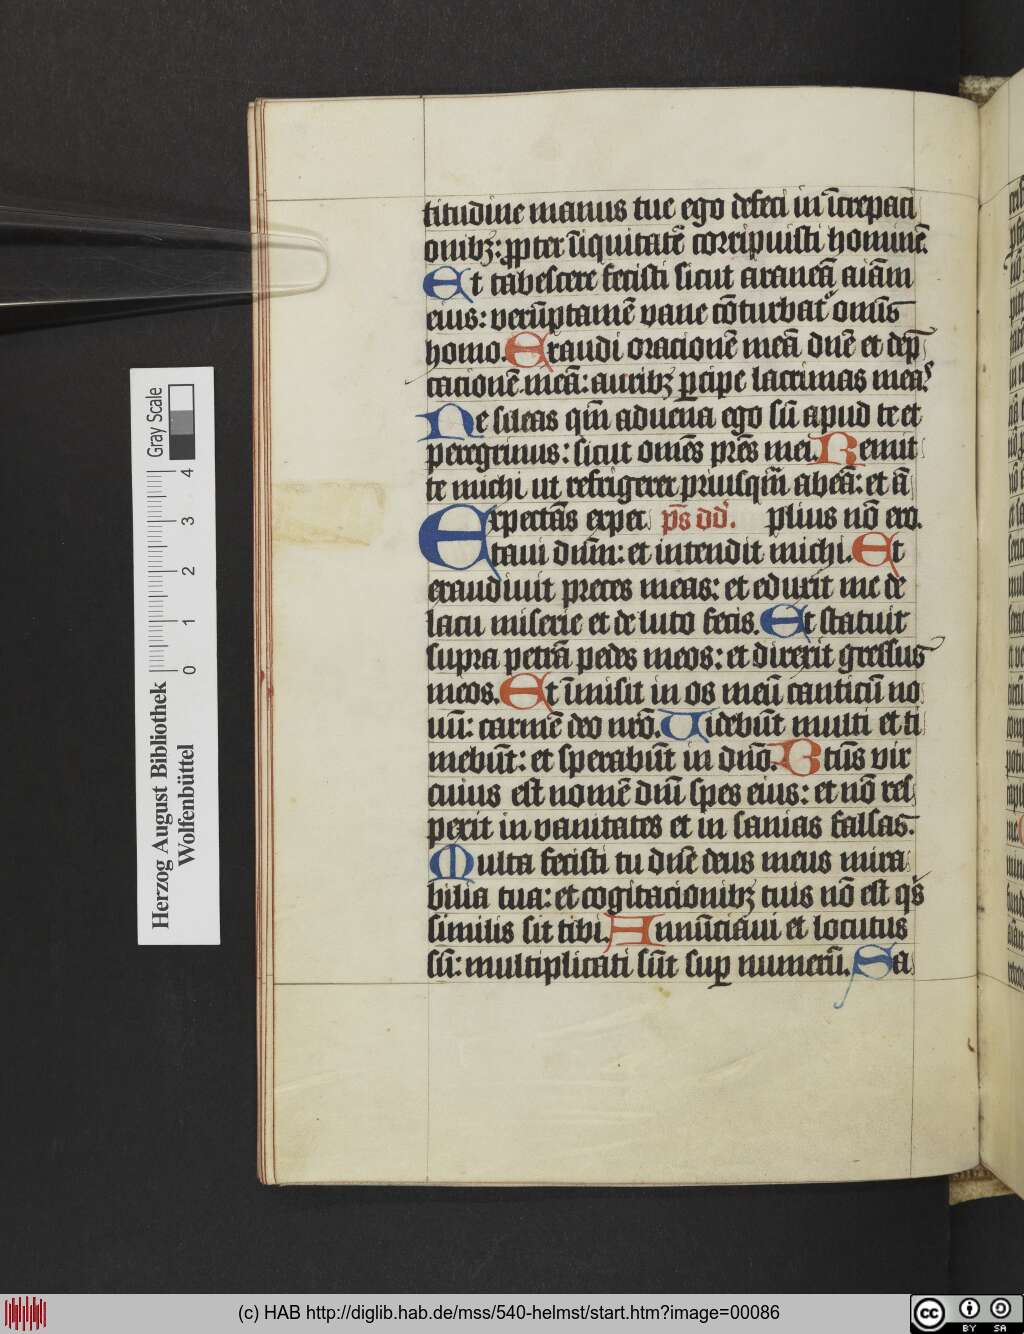 titudine manus tue ego defeci in ĩcrepaci
onibꝫ: ꝓpter ĩiquitatẽ corripuisti hominẽ.
Et tabescere fecisti sicut araneã aĩam
eius: verũptamẽ vane cõturbat᷑ omĩs
homo. Exaudi oracionẽ meã dñe et dep̃
cacionẽ meã: auribꝫ ꝑcipe lacrimas meas.
Ne sileas qm̃ aduena ego sũ apud te et
peregrinus: sicut om̃es pr̃es mei. Remit
te michi ut refrigerer priusq̃m abeã: et ã
Expectãs expec p̃s dd̃. plius nõ ero.
taui dñm: et intendit michi. Et
exaudiuit preces meas: et eduxit me de
lacu miserie et de luto fecis. Et statuit
supra petrã pedes meos: et direxit gressus
meos. Et ĩmisit in os meũ canticũ no
uũ: carmẽ deo nr̃o. Uidebũt multi et ti
mebũt: et sperabũt in dño. Btũs vir
cuius est nomẽ dñi spes eius: et nõ res
pexit in vanitates et in sanias falsas.
Multa fecisti tu dñe deus meus mira
bilia tua: et cogitacionibꝫ tuis nõ est q̃s
similis sit tibi. Annũciaui et locutus
sũ: multiplicati sũt suꝑ numerũ. Sa
Gray Scale
0 1 2 3 4
Herzog August Bibliothek
Wolfenbüttel
(c) HAB http://diglib.hab.de/mss/540-helmst/start.htm?image=00086
cc BY SA